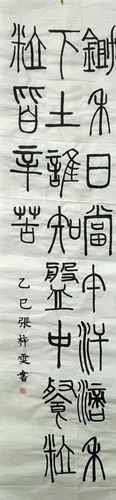 鋤禾日當午汗滴禾
下土誰知盤中餐粒
粒皆辛苦
乙巳張梓雯書